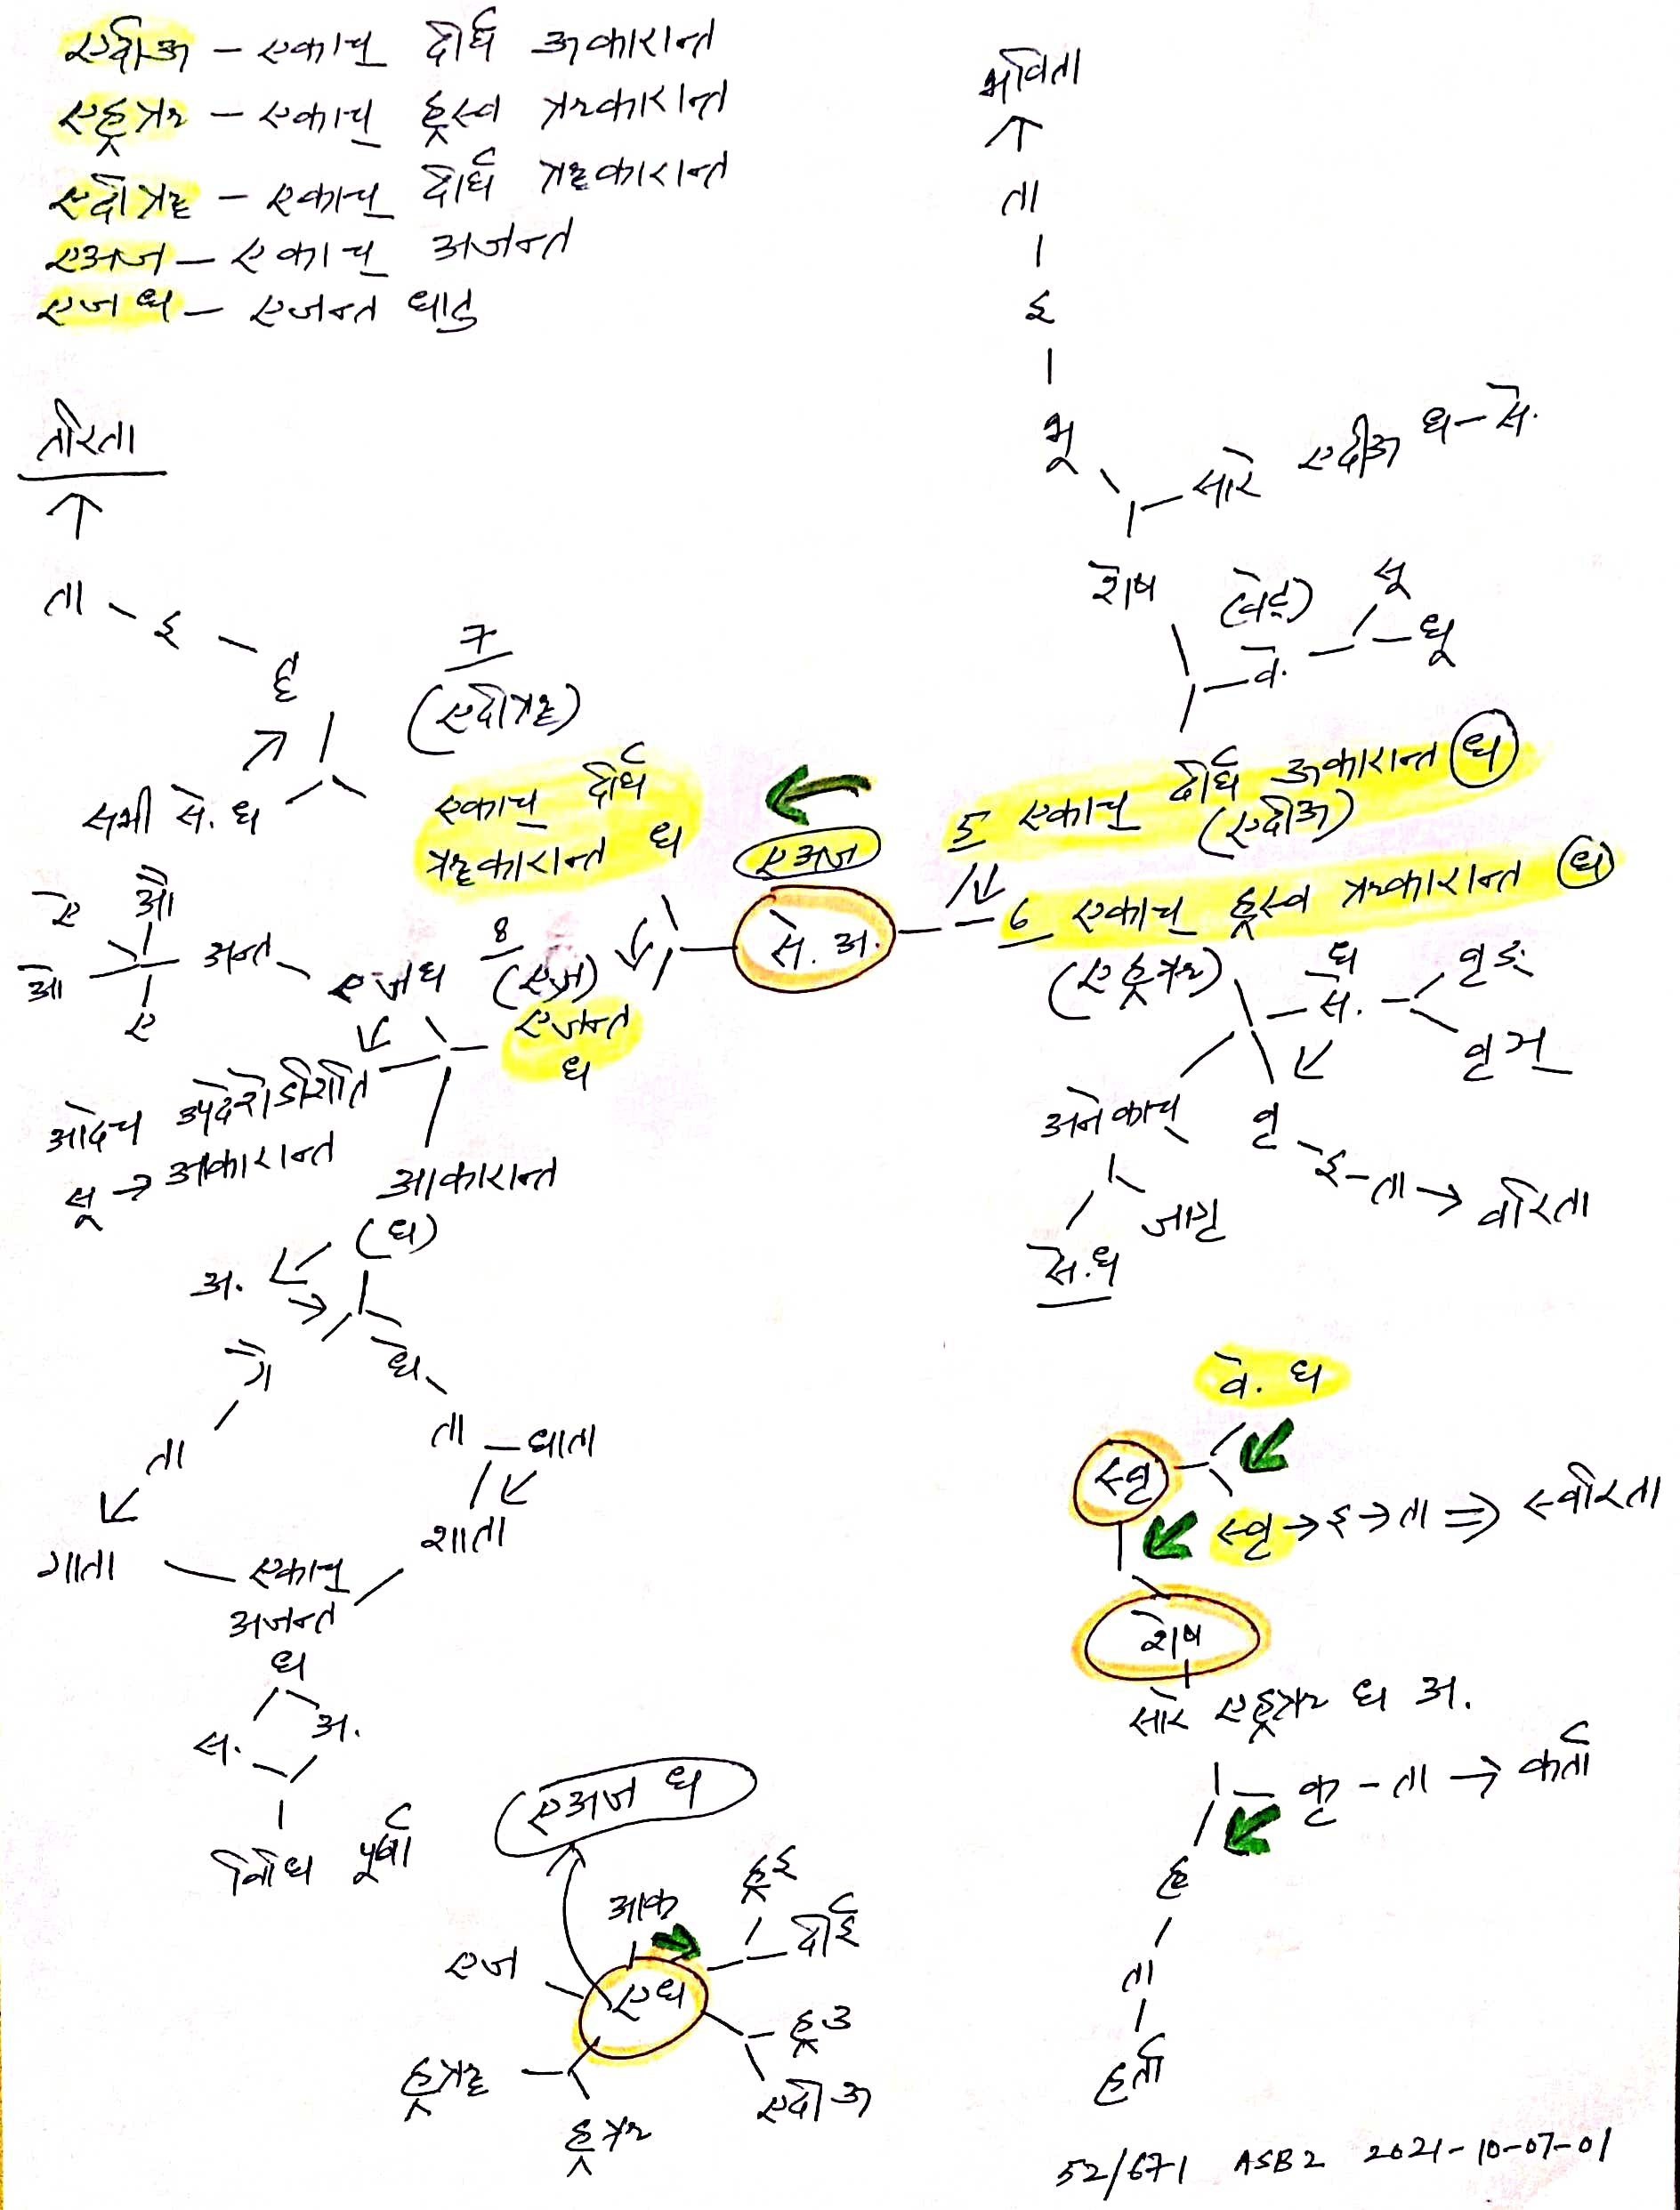 एदीऊ - एकाच् दीर्घ ऊकारान्त
एहृऋ - एकाच् ह्रस्व ऋकारान्त
एदीॠ - एकाच् दीर्घ ॠकारान्त
एअज - एकाच् अजन्त
एज ध - एजन्त धातु
भविता
ता
इ
भू
सारे एदीऊ ध - से.
शेष (वेट्) सू
वे. धू
तरिता
ता - इ - तॄ
७
(एदीॠ)
सभी से. ध
एकाच् दीर्घ
ॠकारान्त ध
एअज
से. अ.
5 एकाच् दीर्घ ऊकारान्त ध
(एदीऊ)
6 एकाच् ह्रस्व ऋकारान्त ध
(एहृऋ)
ध
से.
वृङ्
वृञ्
अनेकाच्
वृ - इ - ता → वरिता
जागृ
से. ध
ऐ औ
ओ अन्त
ए
एजध
8
(एज)
एजन्त
ध
आदेच उपदेशेऽशिति
सू → आकारान्त
आकारान्त
(ध)
अ.
गै धे
ता ता - धाता
गाता शाता
एकाच्
अजन्त
ध
से. अ.
विधि पूर्वा
वे. ध
स्वृ
स्वृ → इ → ता ⇒ स्वरिता
शेष
सारे एहृऋ ध अ.
कृ - ता → कर्ता
हृ
ता
हर्ता
एअज ध
आका हृइ
एज दीई
एध
हृउ
हृॠ एदीऊ
हृऋ
52/671 ASB2 2021-10-07-01